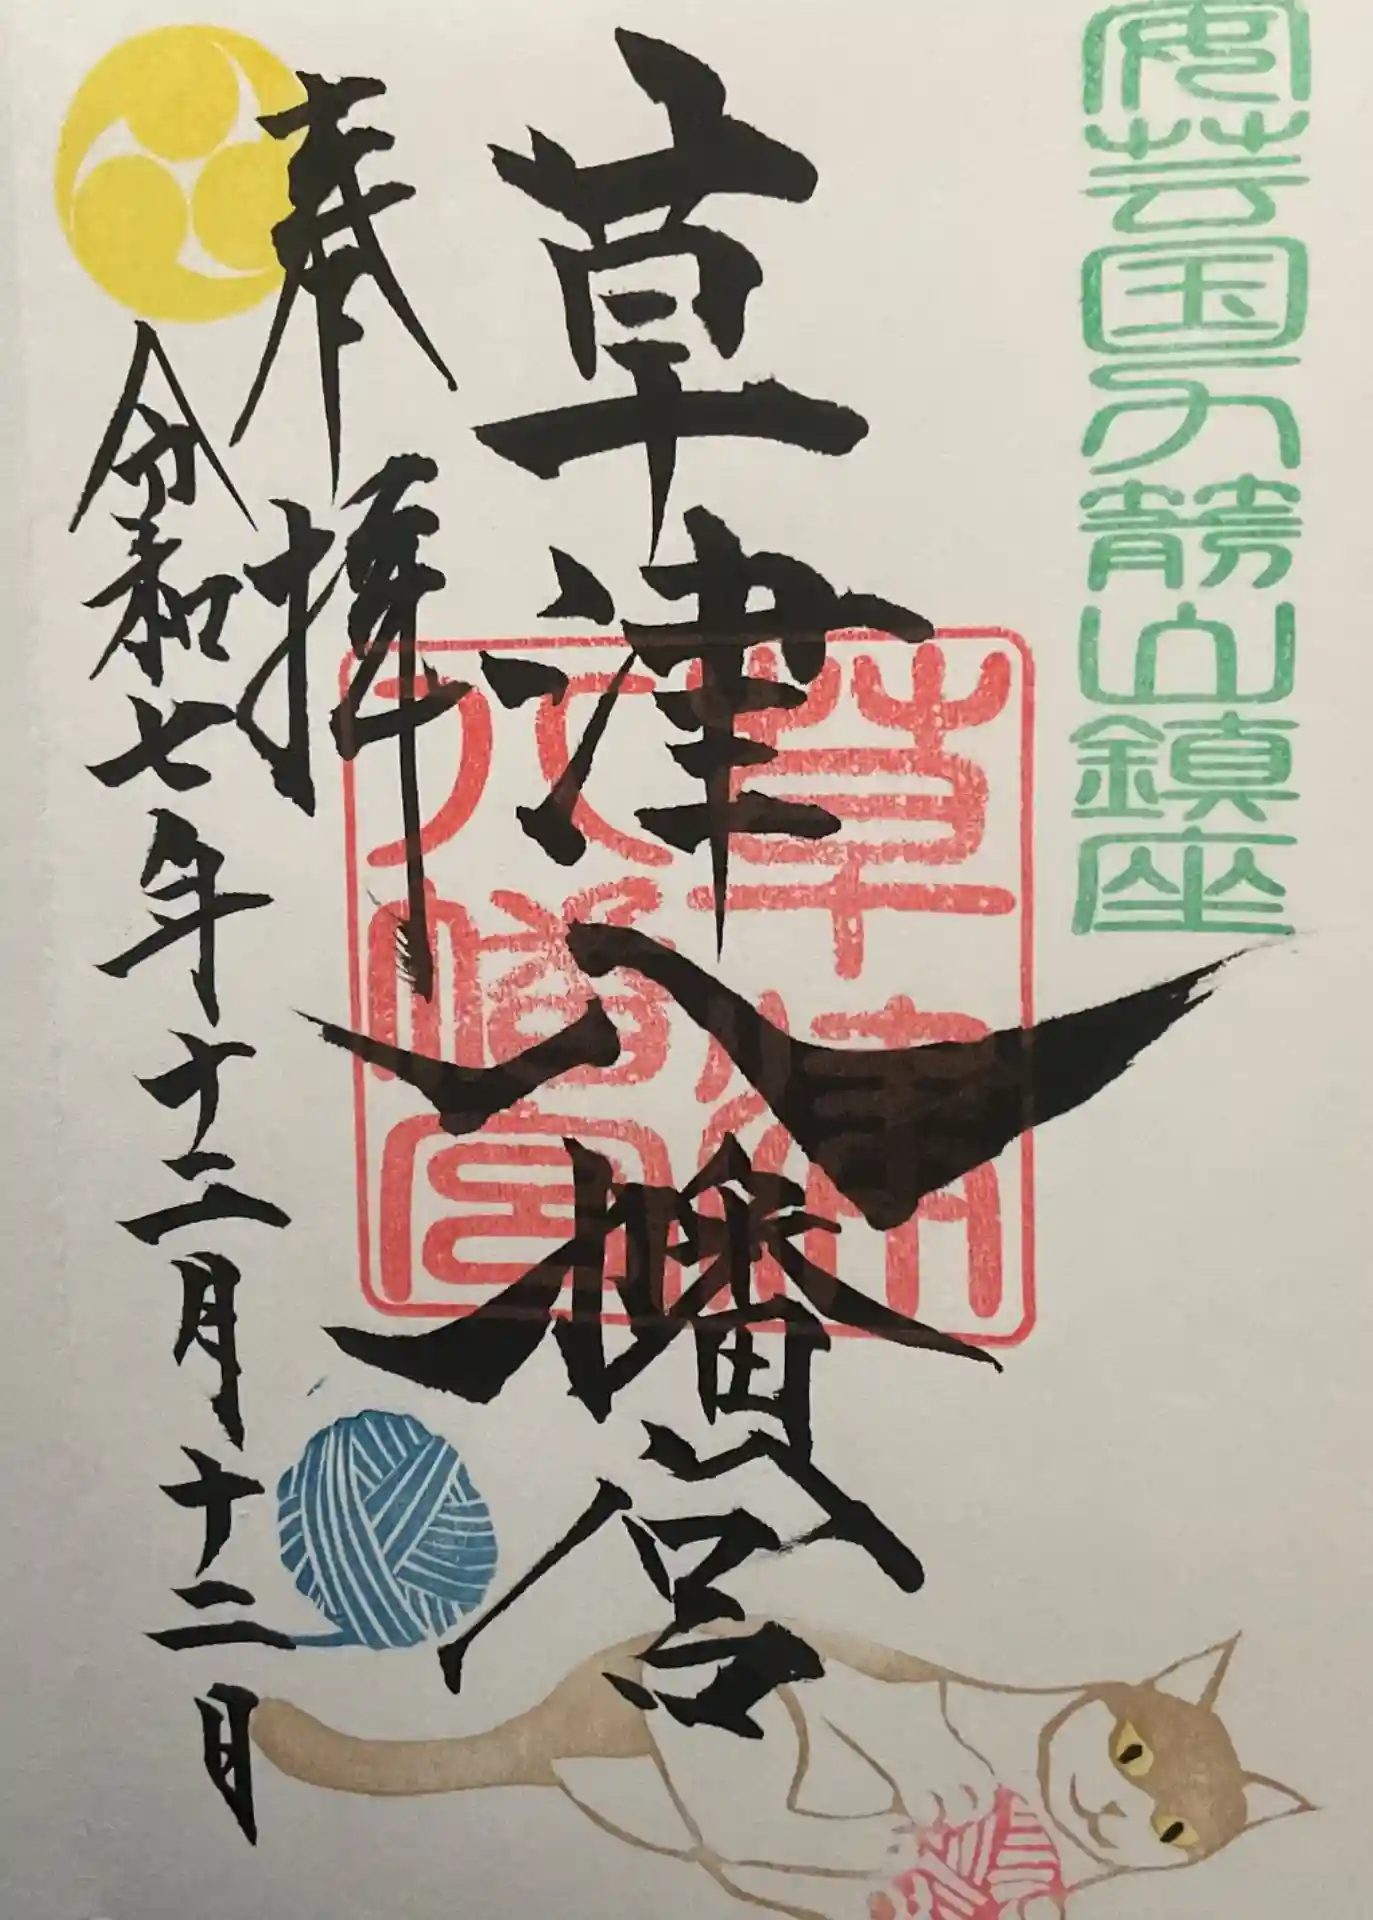 安芸国力箭山鎮座
草津八幡宮
草津
八幡宮
奉拝
令和七年十二月十二日